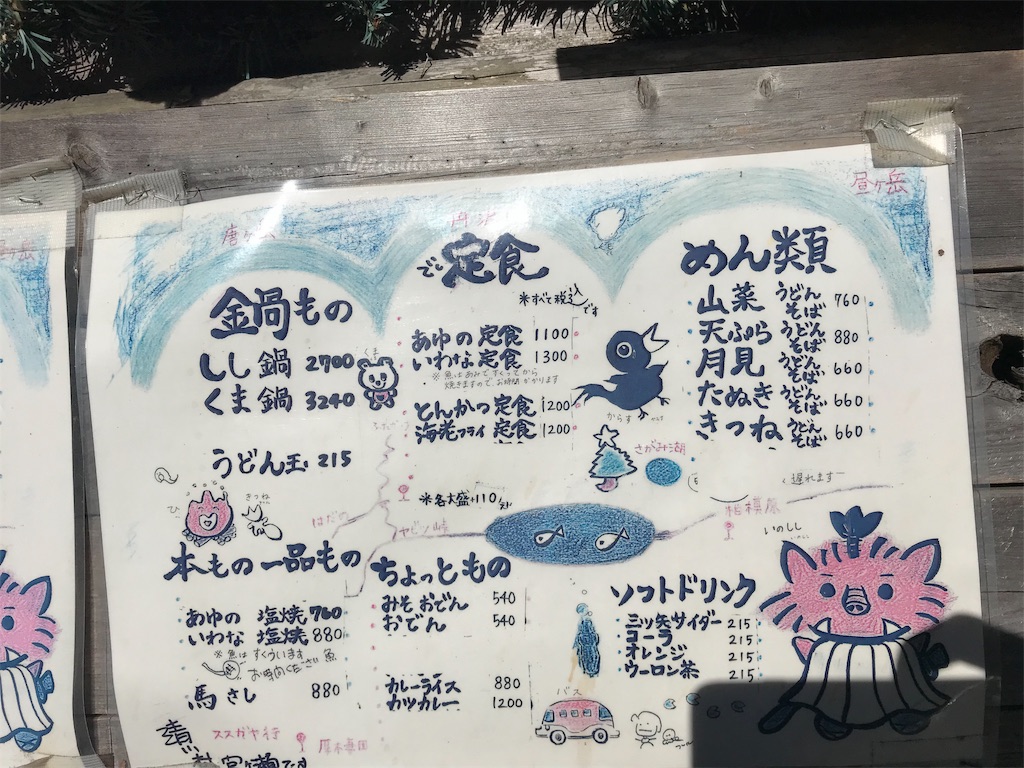 昼ヶ岳
定食
※すべて税込です
あゆの定食 1100
いわな定食 1300
とんかつ定食 1200
海老フライ定食 1200
からす
※各大盛+110
めん類
山菜 うどん そば 760
天ぷら うどん そば 880
月見 うどん そば 660
たぬき うどん そば 660
きつね うどん そば 660
鍋もの
しし鍋 2700
くま鍋 3240
くま
うどん玉 215
きつね
ひ
はだの
ヤビツ峠
さがみ湖
遅れますー
相模原
いのしし
一品もの
あゆの 塩焼 760
いわな 塩焼 880
馬さし 880
ちょっともの
みそおでん 540
おでん 540
カレーライス 880
カツカレー 1200
ソフトドリンク
三ツ矢サイダー 215
コーラ 215
オレンジ 215
ウーロン茶 215
バス
ススガヤ行